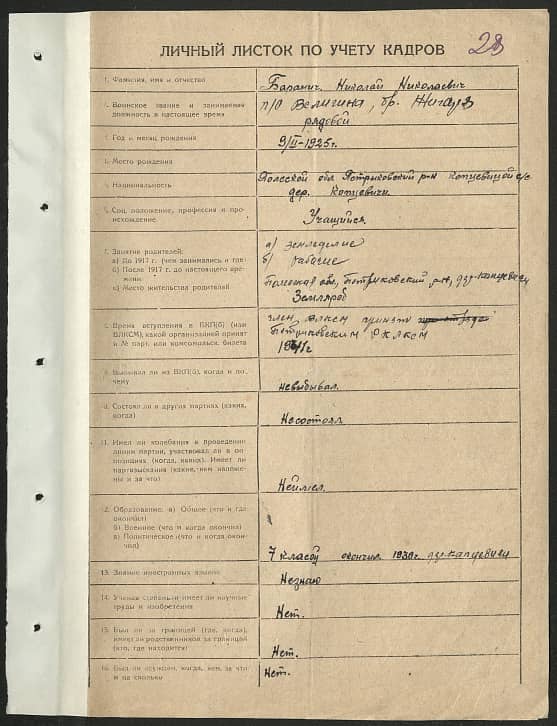 ЛИЧНЫЙ ЛИСТОК ПО УЧЕТУ КАДРОВ
28
1. Фамилия, имя и отчество
Николай Николаевич
2. Воинское звание и занимаемая
должность в настоящее время
п/о Велигина, бр. Жигарь
рядовой
3. Год и месяц рождения
9/II-1925г.
4. Место рождения
Полесской обл Петриковский р-н Копцевицкой с/с
5. Национальность
дер. Копцевичи
6. Соц. положение, профессия и про-
исхождение
Учащийся
7. Занятие родителей:
а) До 1917 г. (чем занимались и где)
б) После 1917 г. до настоящего вре-
мени
в) Место жительства родителей
а) земледелие
б) рабочие
Полесская обл, Петриковский р-н, дер-Копцевичи
Землероб
8. Время вступления в ВКП(б) (или
ВЛКСМ), какой организацией принят
и № парт. или комсомольск. билета
член ВЛКСМ принят
Петриковским РКЛКСМ
1941г
9. Выбывал ли из ВКП(б), когда и по-
чему
невыбывал.
10. Состоял ли в других партиях (каких,
когда)
Несостоял
11. Имел ли колебания в проведении
линии партии, участвовал ли в оп-
позициях (когда, каких). Имеет ли
партвзыскания (какие, кем наложе-
ны и за что)
Неимел.
12. Образование. а) Общее (что и где
окончил)
б) Военное (что и когда окончил)
в) Политическое (что и когда окон-
чил)
7 классов окончил 1939г. дер-Капцевичи
13. Знание иностранных языков
Незнаю
14. Ученая степень и имеет ли научные
труды и изобретения
Нет.
15. Был ли за границей (где, когда),
имеет ли родственников за границей
(кто, где находится)
Нет.
16. Был ли осужден, когда, кем, за что
и на сколько
Нет.